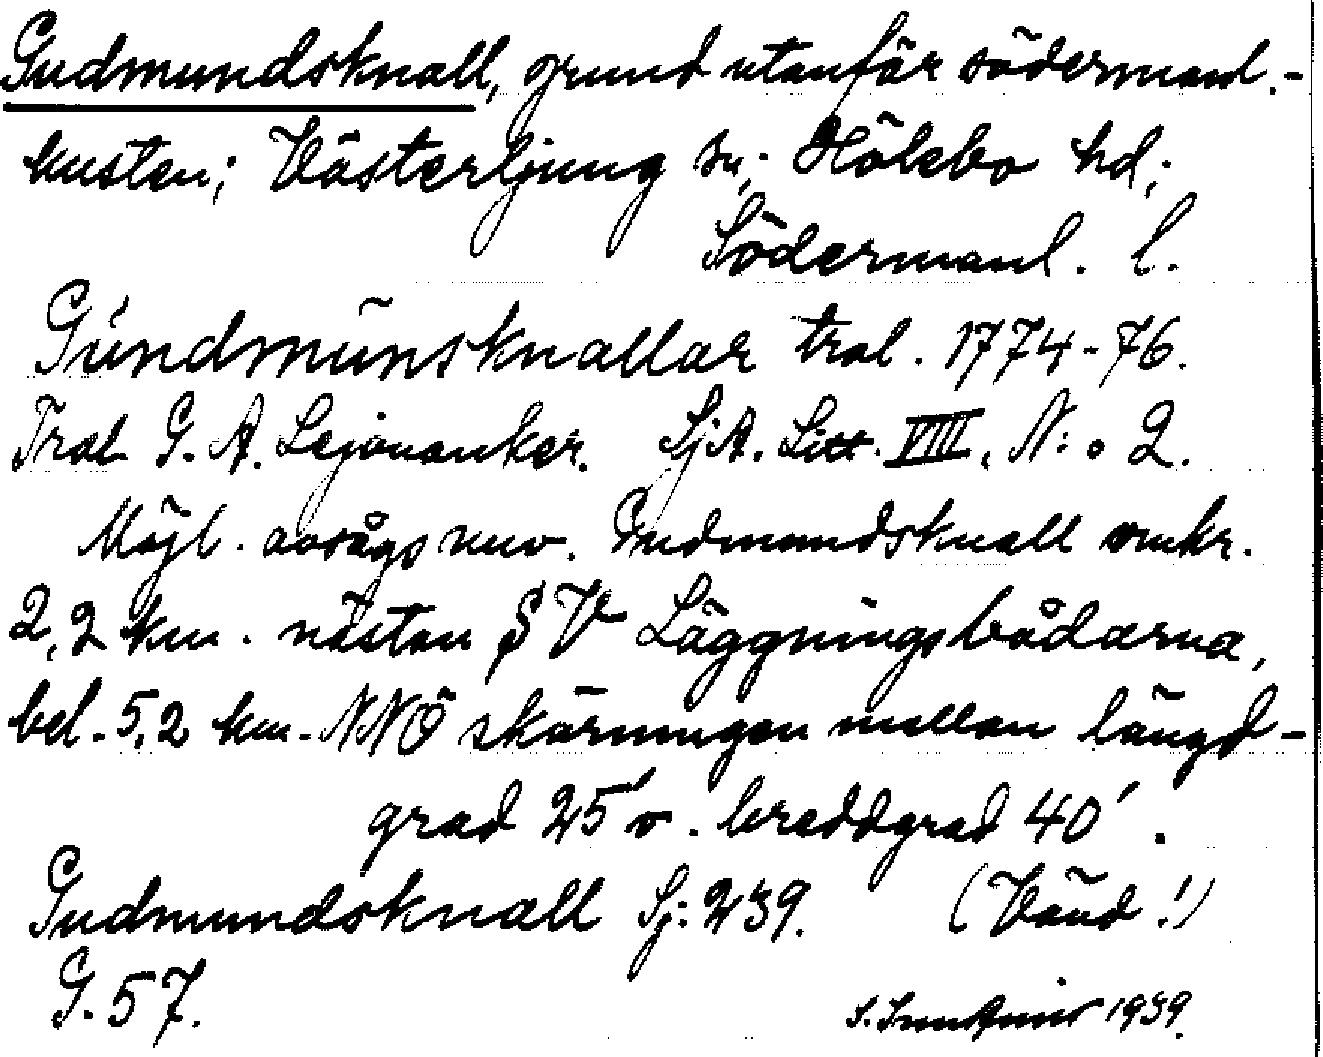 Gudmundsknall, grund utanför södermanl.-
kusten; Västerljung sn; Hölebo hd;
Södermanl. l.
Gúndmünsknallar tral. 1774-76.
Tral G. A. Lejonanker. SjA. Litt. VIII, N:o 2.
Möjl. avsågs nuv. Gudmundsknall omkr.
2,2 km. nästan S V Läggningsbådarna,
bel. 5,2 km. NNÖ skärningen mellan längd-
grad 25' o. breddgrad 40'.
Gudmundsknall Sj: 239. (Vänd!)
G. 57.
S. 1939.